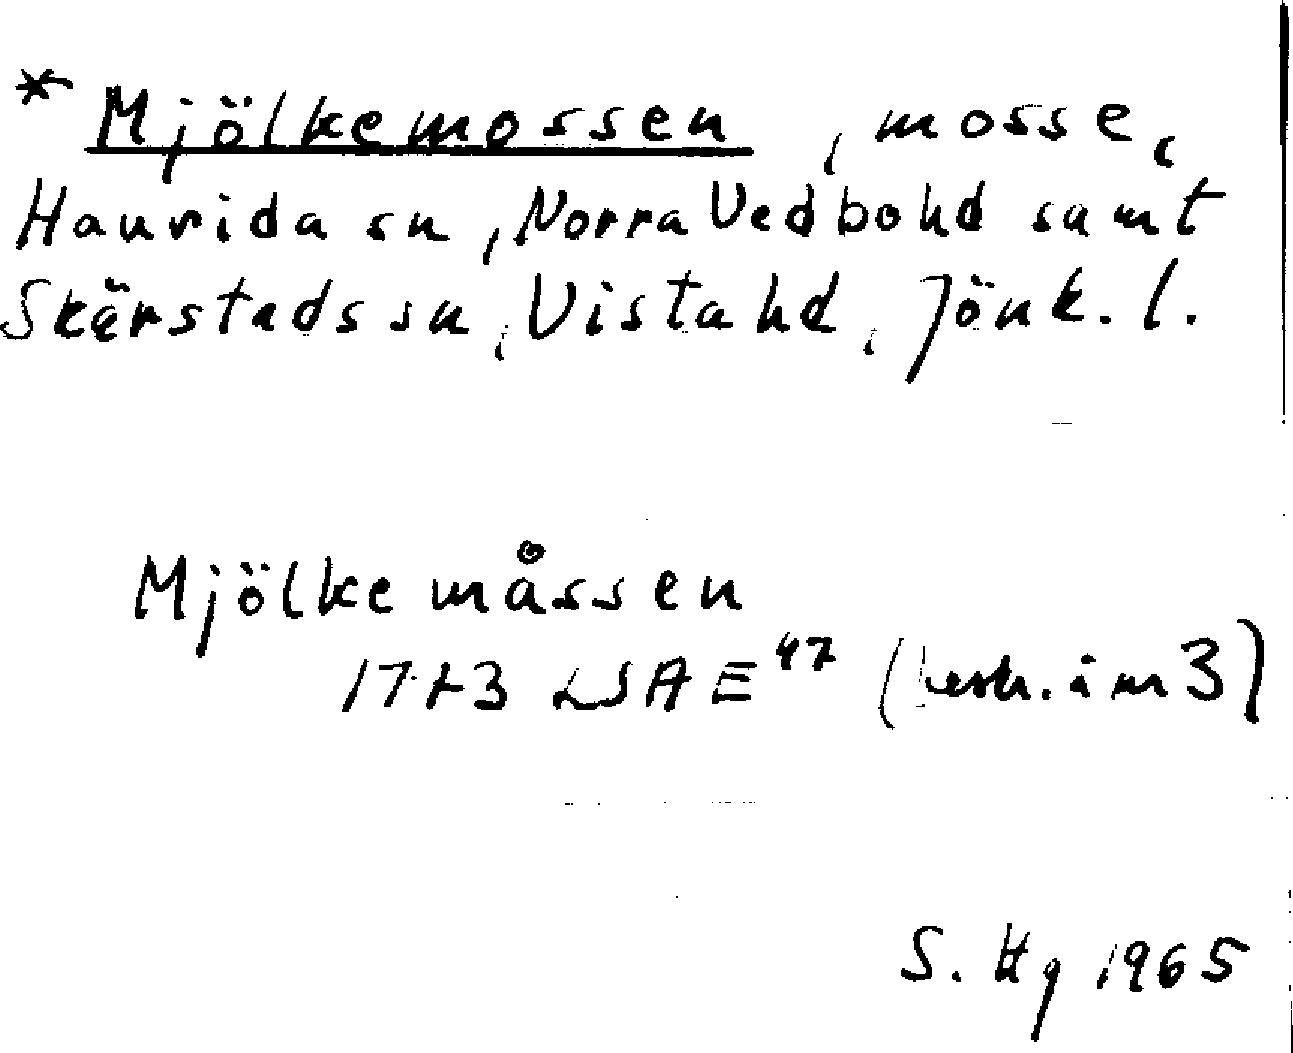 * Mjölkemossen, mosse,
Haurida sn, Norra Vedbohd samt
Skärstads sn, Vista hd, Jönk. l.
Mjölkemåssen
LSA E 47 (besk. i m 3)
S. Hg 1965